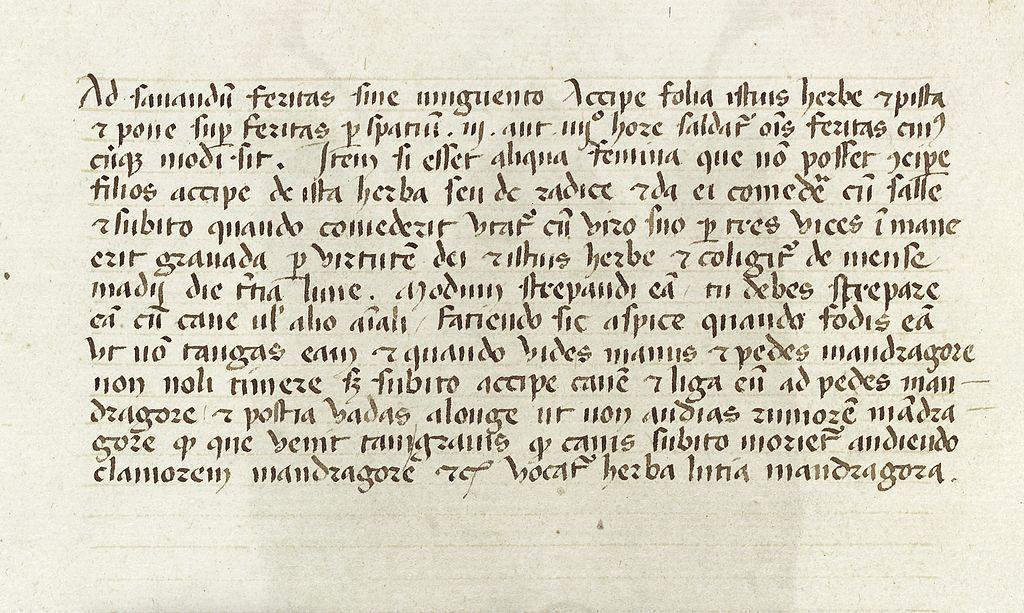 Ad sanandū feritas sine unguento Accipe folia istius herbe ⁊ pista
⁊ pone sup̄ feritas p̱ spatiū . iij . aut iiijͦ hore saldat᷑ oīs feritas cui᷒
cūqꝫ modi sit . Item si esset aliqua femina que nō posset ꝯcipe
filios accipe de ista herba seu de radice ⁊ da ei comedē cū salle
⁊ subito quando comederit utat᷑ cū viro suo p̱ tres vices ī mane
erit gravada p̱ virtutē dei ⁊ istius herbe ⁊ coligit᷑ de mense
madij die t̄tia lune . Modum strepandi eā tu debes strepare
eā cū cane ul̓ alio aīali / faciendo sic aspice quando fodis eā
ut nō tangas eam ⁊ quando vides manus ⁊ pedes mandragore
non noli timere sꝫ subito accipe canē ⁊ liga eū ad pedes man
dragore / ⁊ postia vadas alonge ut non audias rumorē mādra
gorē qꝫ que venit tam gravis qꝫ canis subito moriet᷑ audiendo
clamorem mandragorē ⁊cʳ vocat᷑ herba lutia mandragora .